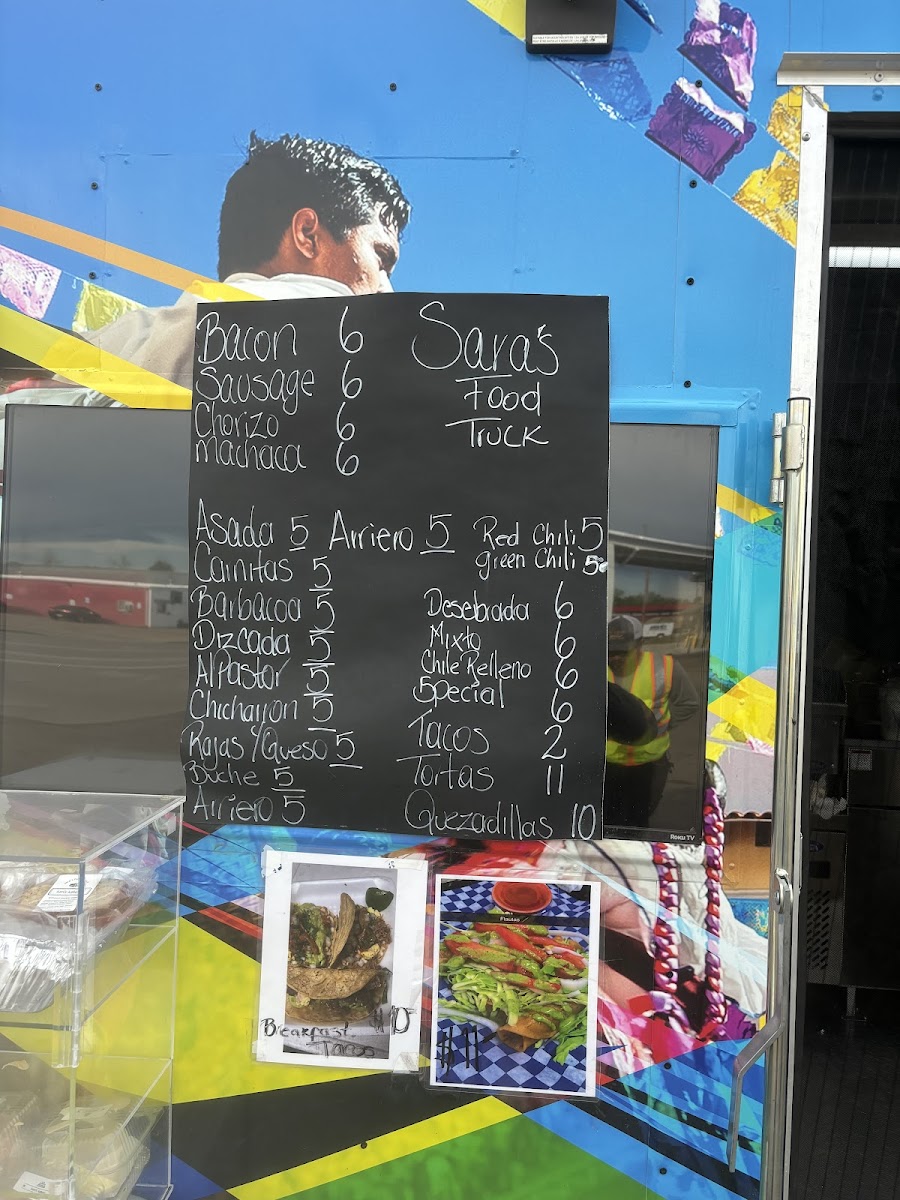 Bacon 6
Sausage 6
Chorizo 6
Machaca 6
Sara's
Food
Truck
Asada 5
Arriero 5
Red Chili 5
green Chili 5
Carnitas 5
Barbacoa 5
Dizcada 5
Al Pastor 5
Chicharron 5
Rajas Y Queso 5
Buche 5
Arriero 5
Desebrada 6
Mixto 6
Chile Relleno 6
Special 6
Tacos 2
Tortas 11
Quezadillas 10
Roku TV
Breakfast
Tacos
Flautas
$11